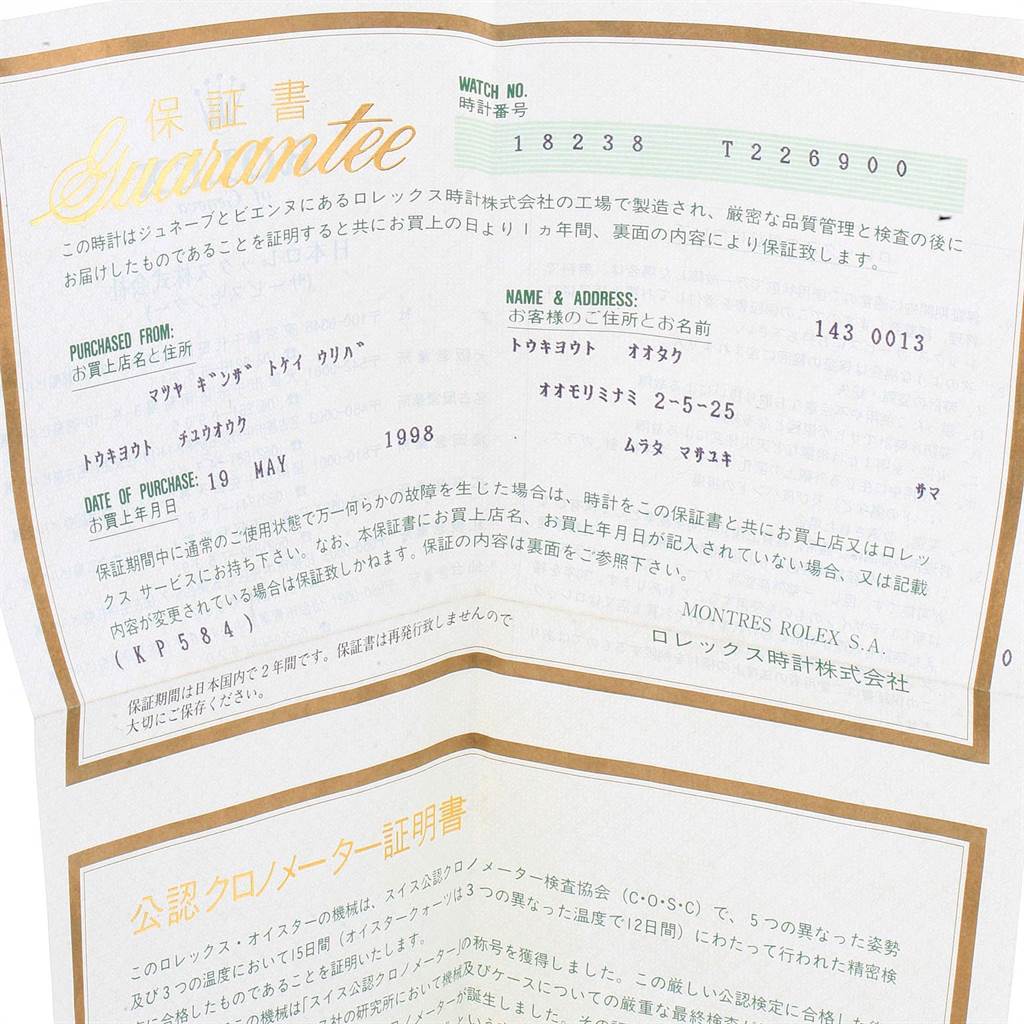 保証書
Guarantee
WATCH NO.
時計番号
18238 T226900
この時計はジュネーブとビエンヌにあるロレックス時計株式会社の工場で製造され、厳密な品質管理と検査の後に
お届けしたものであることを証明すると共にお買上の日より1ヵ年間、裏面の内容により保証致します。
PURCHASED FROM:
お買上店名と住所
マツヤ ギンザ トケイ ウリバ
トウキヨウト チユウオウク
DATE OF PURCHASE: 19 MAY 1998
お買上年月日
NAME & ADDRESS:
お客様のご住所とお名前
143 0013
トウキヨウト オオタク
オオモリミナミ 2-5-25
ムラタ マサユキ
サマ
保証期間中に通常のご使用状態で万一何らかの故障を生じた場合は、時計をこの保証書と共にお買上店又はロレッ
クス サービスにお持ち下さい。なお、本保証書にお買上店名、お買上年月日が記入されていない場合、又は記載
内容が変更されている場合は保証致しかねます。保証の内容は裏面をご参照下さい。
(KP584)
MONTRES ROLEX S.A.
ロレックス時計株式会社
保証期間は日本国内で2年間です。保証書は再発行致しませんので
大切にご保存ください。
0
公認クロノメーター証明書
このロレックス・オイスターの機械は、スイス公認クロノメーター検査協会(C・O・S・C)で、5つの異なった姿勢
及び3つの温度において15日間(オイスタークォーツは3つの異なった温度で12日間)にわたって行われた精密検
に合格したものであることを証明いたします。
この機械は「スイス公認クロノメーター」の称号を獲得しました。この厳しい公認検定に合格した後
社の研究所において機械及びケースについての厳重な最終検査が
ターが誕生しました。